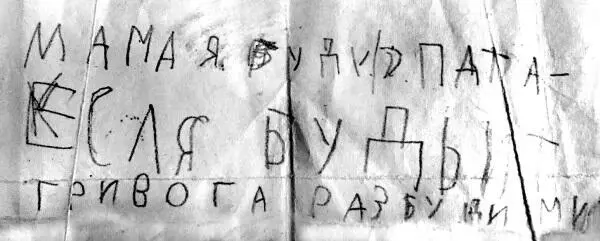 МАМА Я БУДУ СПАТ А-
ЕСЛЯ БУДЫТ
ТРИВОГА РАЗБУДИ МИ